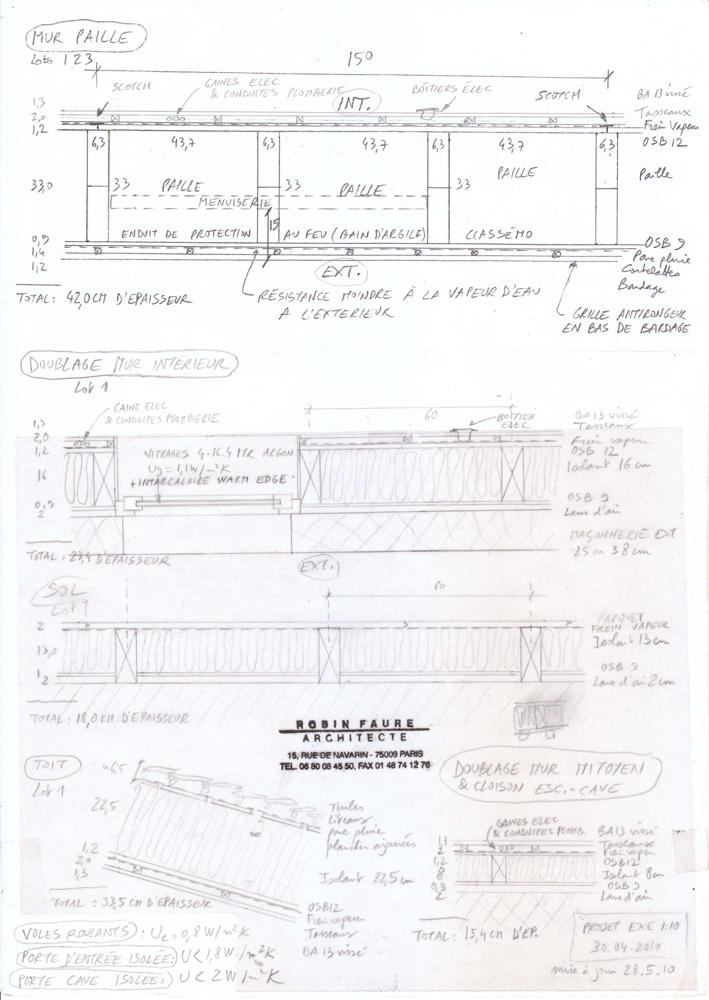 MUR PAILLE
Lots 1 2 3
150
SCOTCH
GAINES ELEC
& CONDUITES PLOMBERIE
INT.
BOÎTIERS ÉLEC
SCOTCH
1,3
2,0
1,2
BA 13 vissé
Tasseaux
Frein Vapeur
OSB 12
6,3 43,7 6,3 43,7 6,3 43,7 6,3
33,0
33 PAILLE 33 PAILLE 33 PAILLE
Paille
MENUISERIE
15
ENDUIT DE PROTECTION AU FEU (BAIN D'ARGILE) CLASSÉ M0
0,9
1,4
1,2
OSB 9
Pare pluie
Contrelattes
Bardage
EXT.
TOTAL: 42,0CM D'EPAISSEUR
RÉSISTANCE MOINDRE À LA VAPEUR D'EAU
A L'EXTERIEUR
GRILLE ANTIRONGEUR
EN BAS DE BARDAGE
DOUBLAGE MUR INTÉRIEUR
Lot 1
GAINE ELEC
& CONDUITES PLOMBERIE
60
BOÎTIER
ELEC
1,3
2,0
1,2
16
0,9
2
BA 13 vissé
Tasseaux
Frein vapeur
OSB 12
Isolant 16 cm
OSB 9
Lame d'air
VITRAGES 4-16.4 FTR ARGON
Ug = 1,1 W/m²K
+ INTERCALAIRE WARM EDGE
MAÇONNERIE EXT
25 ou 38 cm
TOTAL: 23,4 D'EPAISSEUR
EXT.
SOL
Lot 1
60
2
13,0
1
2
PARQUET
FREIN VAPEUR
Isolant 13 cm
OSB 9
Lame d'air 2 cm
TOTAL: 18,0 CM D'EPAISSEUR
ROBIN FAURE
ARCHITECTE
15, RUE DE NAVARIN - 75009 PARIS
TEL. 06 80 08 45 50, FAX 01 48 74 12 76
TOIT
Lot 1
22,5
1,2
2,0
1,3
Tuiles
Liteaux
pare pluie
planches ajourées
Isolant 22,5 cm
OSB 12
Frein vapeur
Tasseaux
BA 13 vissé
TOTAL: 33,5 CM D'EPAISSEUR
DOUBLAGE MUR MITOYEN
& CLOISON ESC.-CAVE
GAINES ELEC
& CONDUITES PLOMB.
1,3
2
1,2
8
0,9
2
BA 13 vissé
Tasseaux
Frein vapeur
OSB 12
Isolant 8 cm
OSB 9
Lame d'air
TOTAL: 15,4 CM D'EP.
VOLES ROULANTS: Uc = 0,8 W/m²K
PORTE D'ENTRÉE ISOLÉE: U < 1,8 W/m²K
PORTE CAVE ISOLÉE: U < 2 W/m²K
PROJET EXE 1:10
30.04.2010
mise à jour 28.5.10